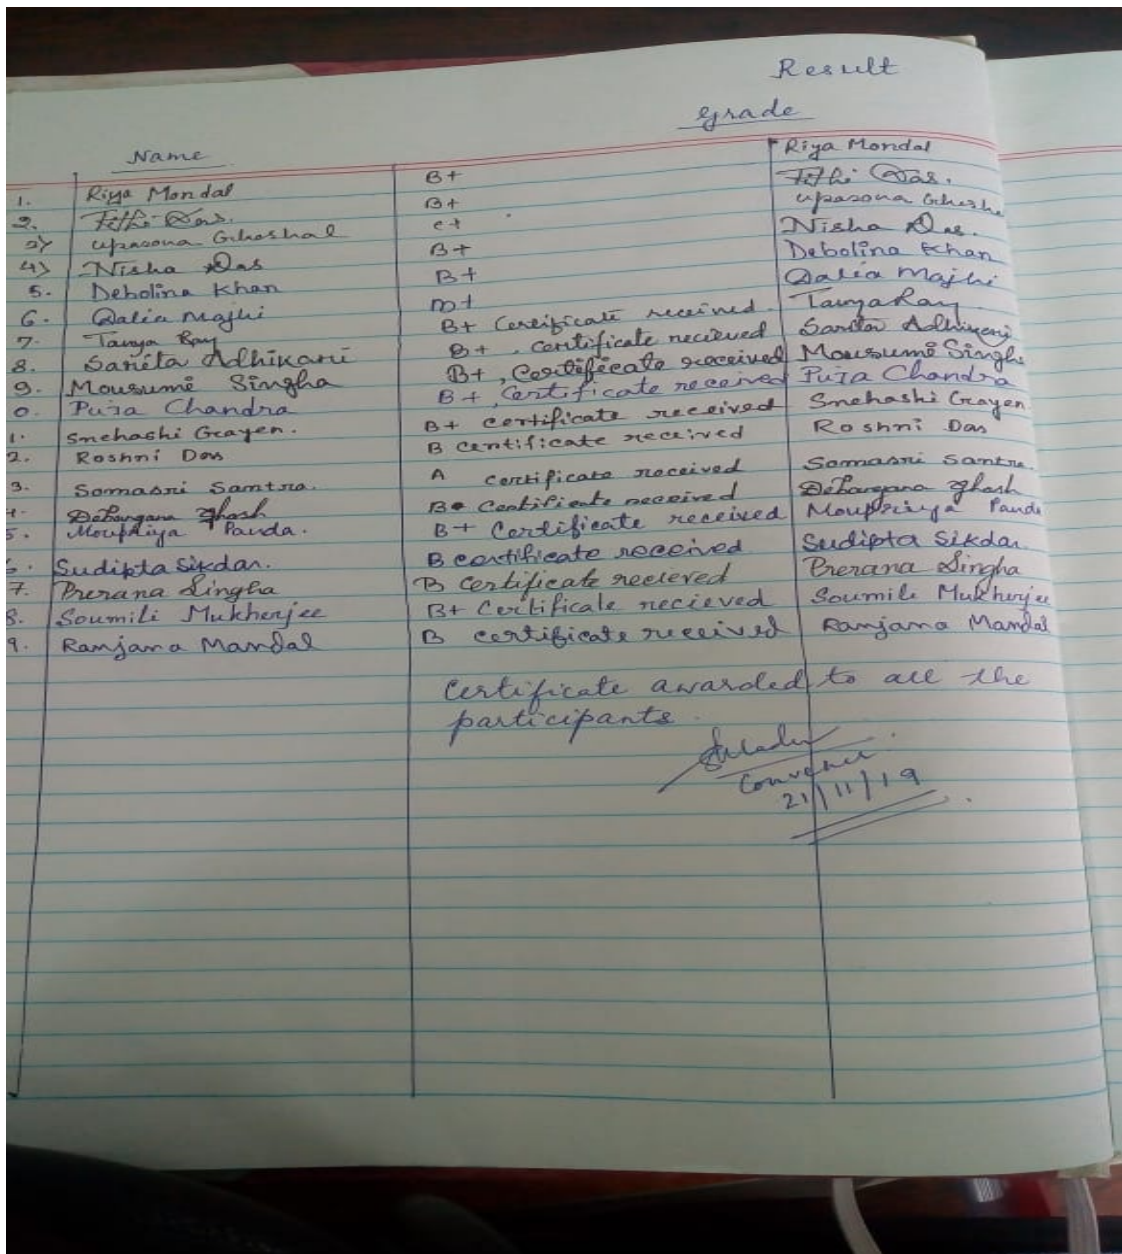 Result
Grade
Name
1. Riya Mondal B+ Riya Mondal
2. Tithi Das. B+ Tithi Das.
3) Upasona Ghoshal c+ Upasona Ghosha
4) Nisha Das B+ Nisha Das.
5. Debolina Khan B+ Debolina Khan
6. Dalia Majhi Dalia Majhi
7. Tanya Ray B+ Certificate received. Tanya Ray
8. Sarita Adhikari B+, certificate recieved Sarita Adhikari
9. Mousumi Singha B+, Certificate received Mousumi Singha
0. Puja Chandra B+, Certificate received Puja Chandra
1. Snehashi Gayen. B+ certificate received Snehashi Gayen
2. Roshni Das B certificate received Roshni Das
3. Somasri Samtra. A certificate received Somasri Samtra.
4. Debangana Ghosh B Certificate received Debangana Ghosh
5. Moupriya Panda. B+ Certificate received Moupriya Panda
6. Sudipta Sikdar. B certificate received Sudipta Sikdar.
7. Prerana Singha B Certificate recieved Prerana Singha
8. Soumili Mukherjee B+ Certificate recieved Soumili Mukherjee
9. Ranjana Mandal B certificate received Ranjana Mandal
Certificate awarded to all the
participants.
Convener
21/11/19